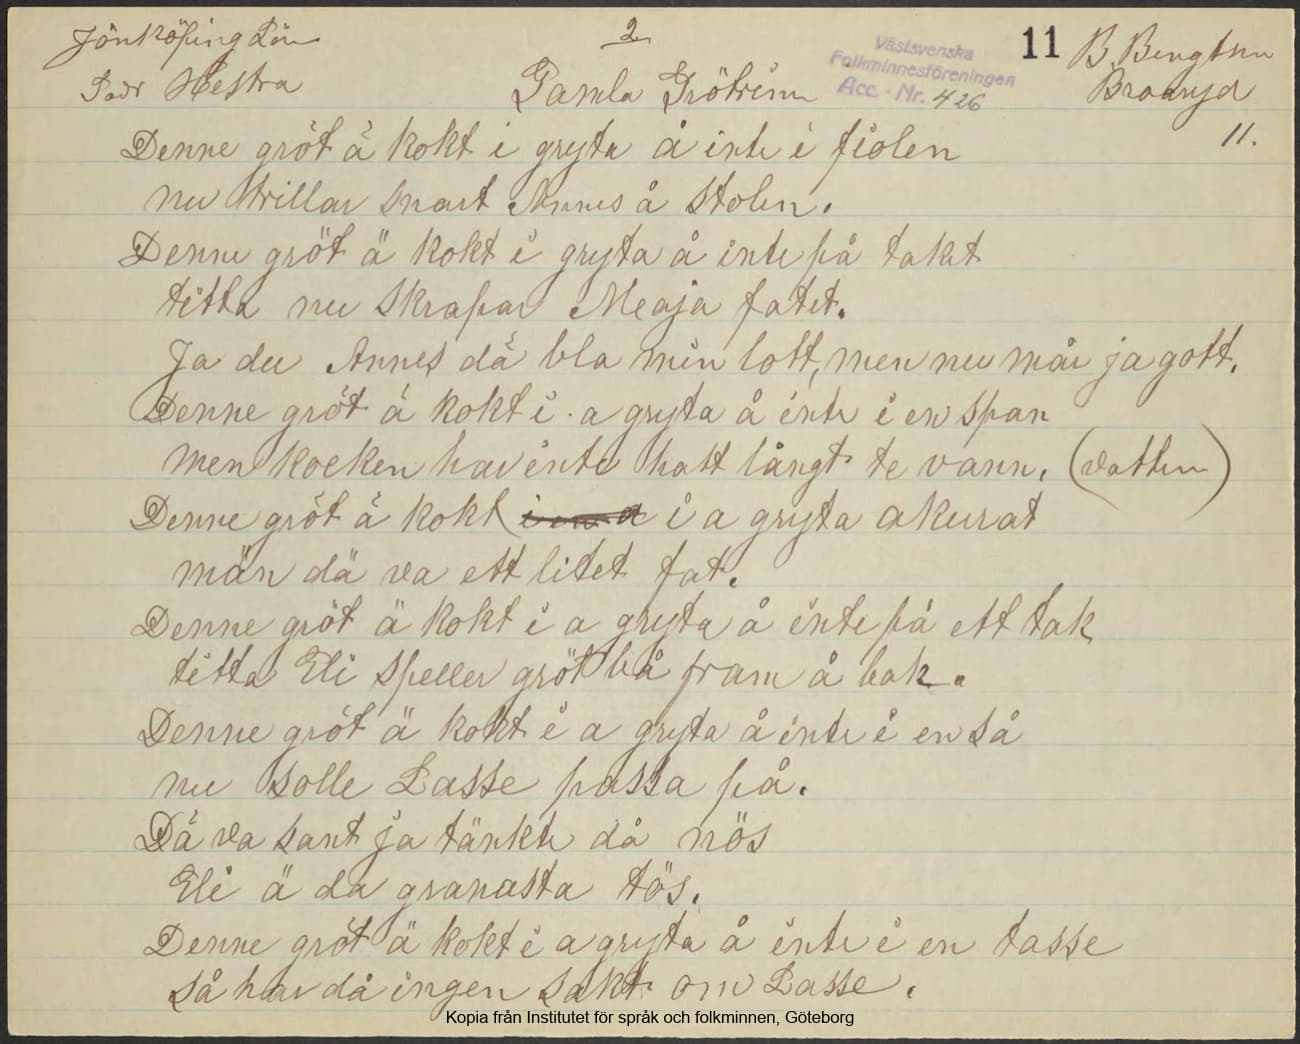 Jönköping Län
2
11
B. Bengtson
Västsvenska
Folkminnesföreningen
Acc. - Nr. 426
Södr Hestra
Gamla Grötrim
Broaryd
11.
Denne gröt ä kokt i gryta å inte i fiolen
nu trillar snart Annes å stolen.
Denne gröt ä kokt i gryta å inte på taket
titta nu skrapar Meaja fatet.
Ja du Annes dä bla min lott, men nu mår ja gott.
Denne gröt ä kokt i a gryta å inte i en span
men kocken har inte hatt långt te vann. (vatten)
Denne gröt ä kokt i a gryta akurat
män dä va ett litet fat.
Denne gröt ä kokt i a gryta å inte på ett tak
titta Eli speller gröt bå fram å bak.
Denne gröt ä kokt i a gryta å inte i en så
nu solle Lasse passa på.
Dä va sant ja tänkte då nös
Eli ä da granasta tös.
Denne gröt ä kokt i a gryta å inte i en tasse
så har då ingen sakt om Lasse.
Kopia från Institutet för språk och folkminnen, Göteborg